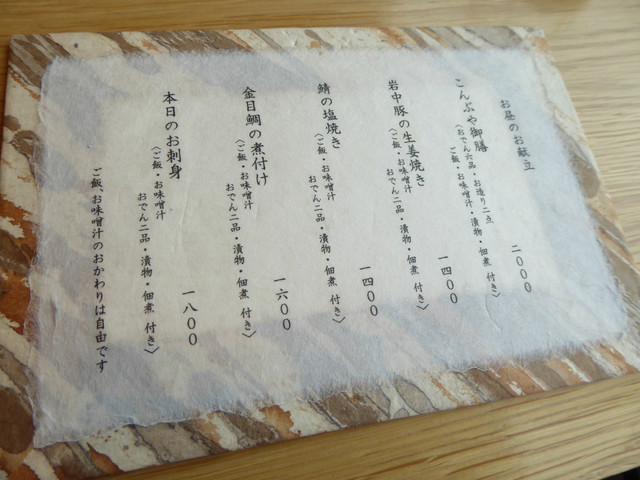 お昼のお献立
こんぶや御膳
〈おでん六品・お造り二点
ご飯・お味噌汁・漬物・佃煮 付き〉
二〇〇〇
岩中豚の生姜焼き
〈ご飯・お味噌汁
おでん二品・漬物・佃煮 付き〉
一四〇〇
鯖の塩焼き
〈ご飯・お味噌汁
おでん二品・漬物・佃煮 付き〉
一四〇〇
金目鯛の煮付け
〈ご飯・お味噌汁
おでん二品・漬物・佃煮 付き〉
一六〇〇
本日のお刺身
〈ご飯・お味噌汁
おでん二品・漬物・佃煮 付き〉
一八〇〇
ご飯、お味噌汁のおかわりは自由です